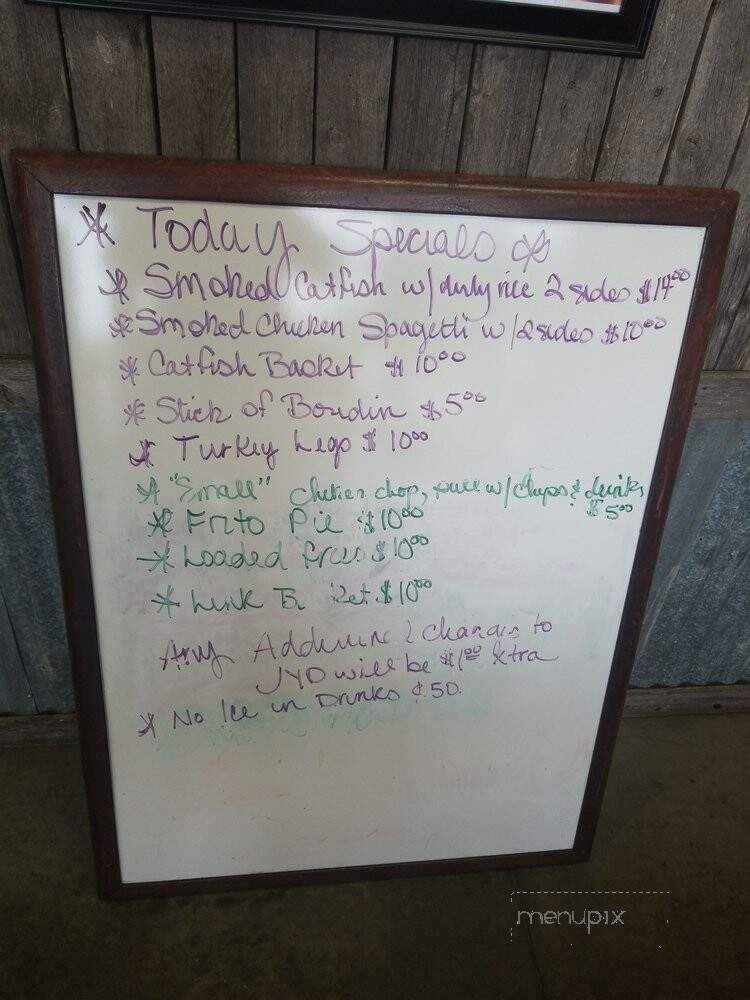 * Today Specials
* Smoked Catfish w/ duty rice 2 sides $14.00
* Smoked Chicken Spagetti w/2 sides $10.00
* Catfish Basket $10.00
* Stick of Boudin $5.00
* Turkey Legs $10.00
* "Small" chop, w/ Chips & drinks
$5.00
* Frito Pie $10.00
* Loaded fries $10.00
* Link $10.00
Any 2 changes to
JYD will be $1.00 Xtra
* No Ice in Drinks ¢50.
menupix